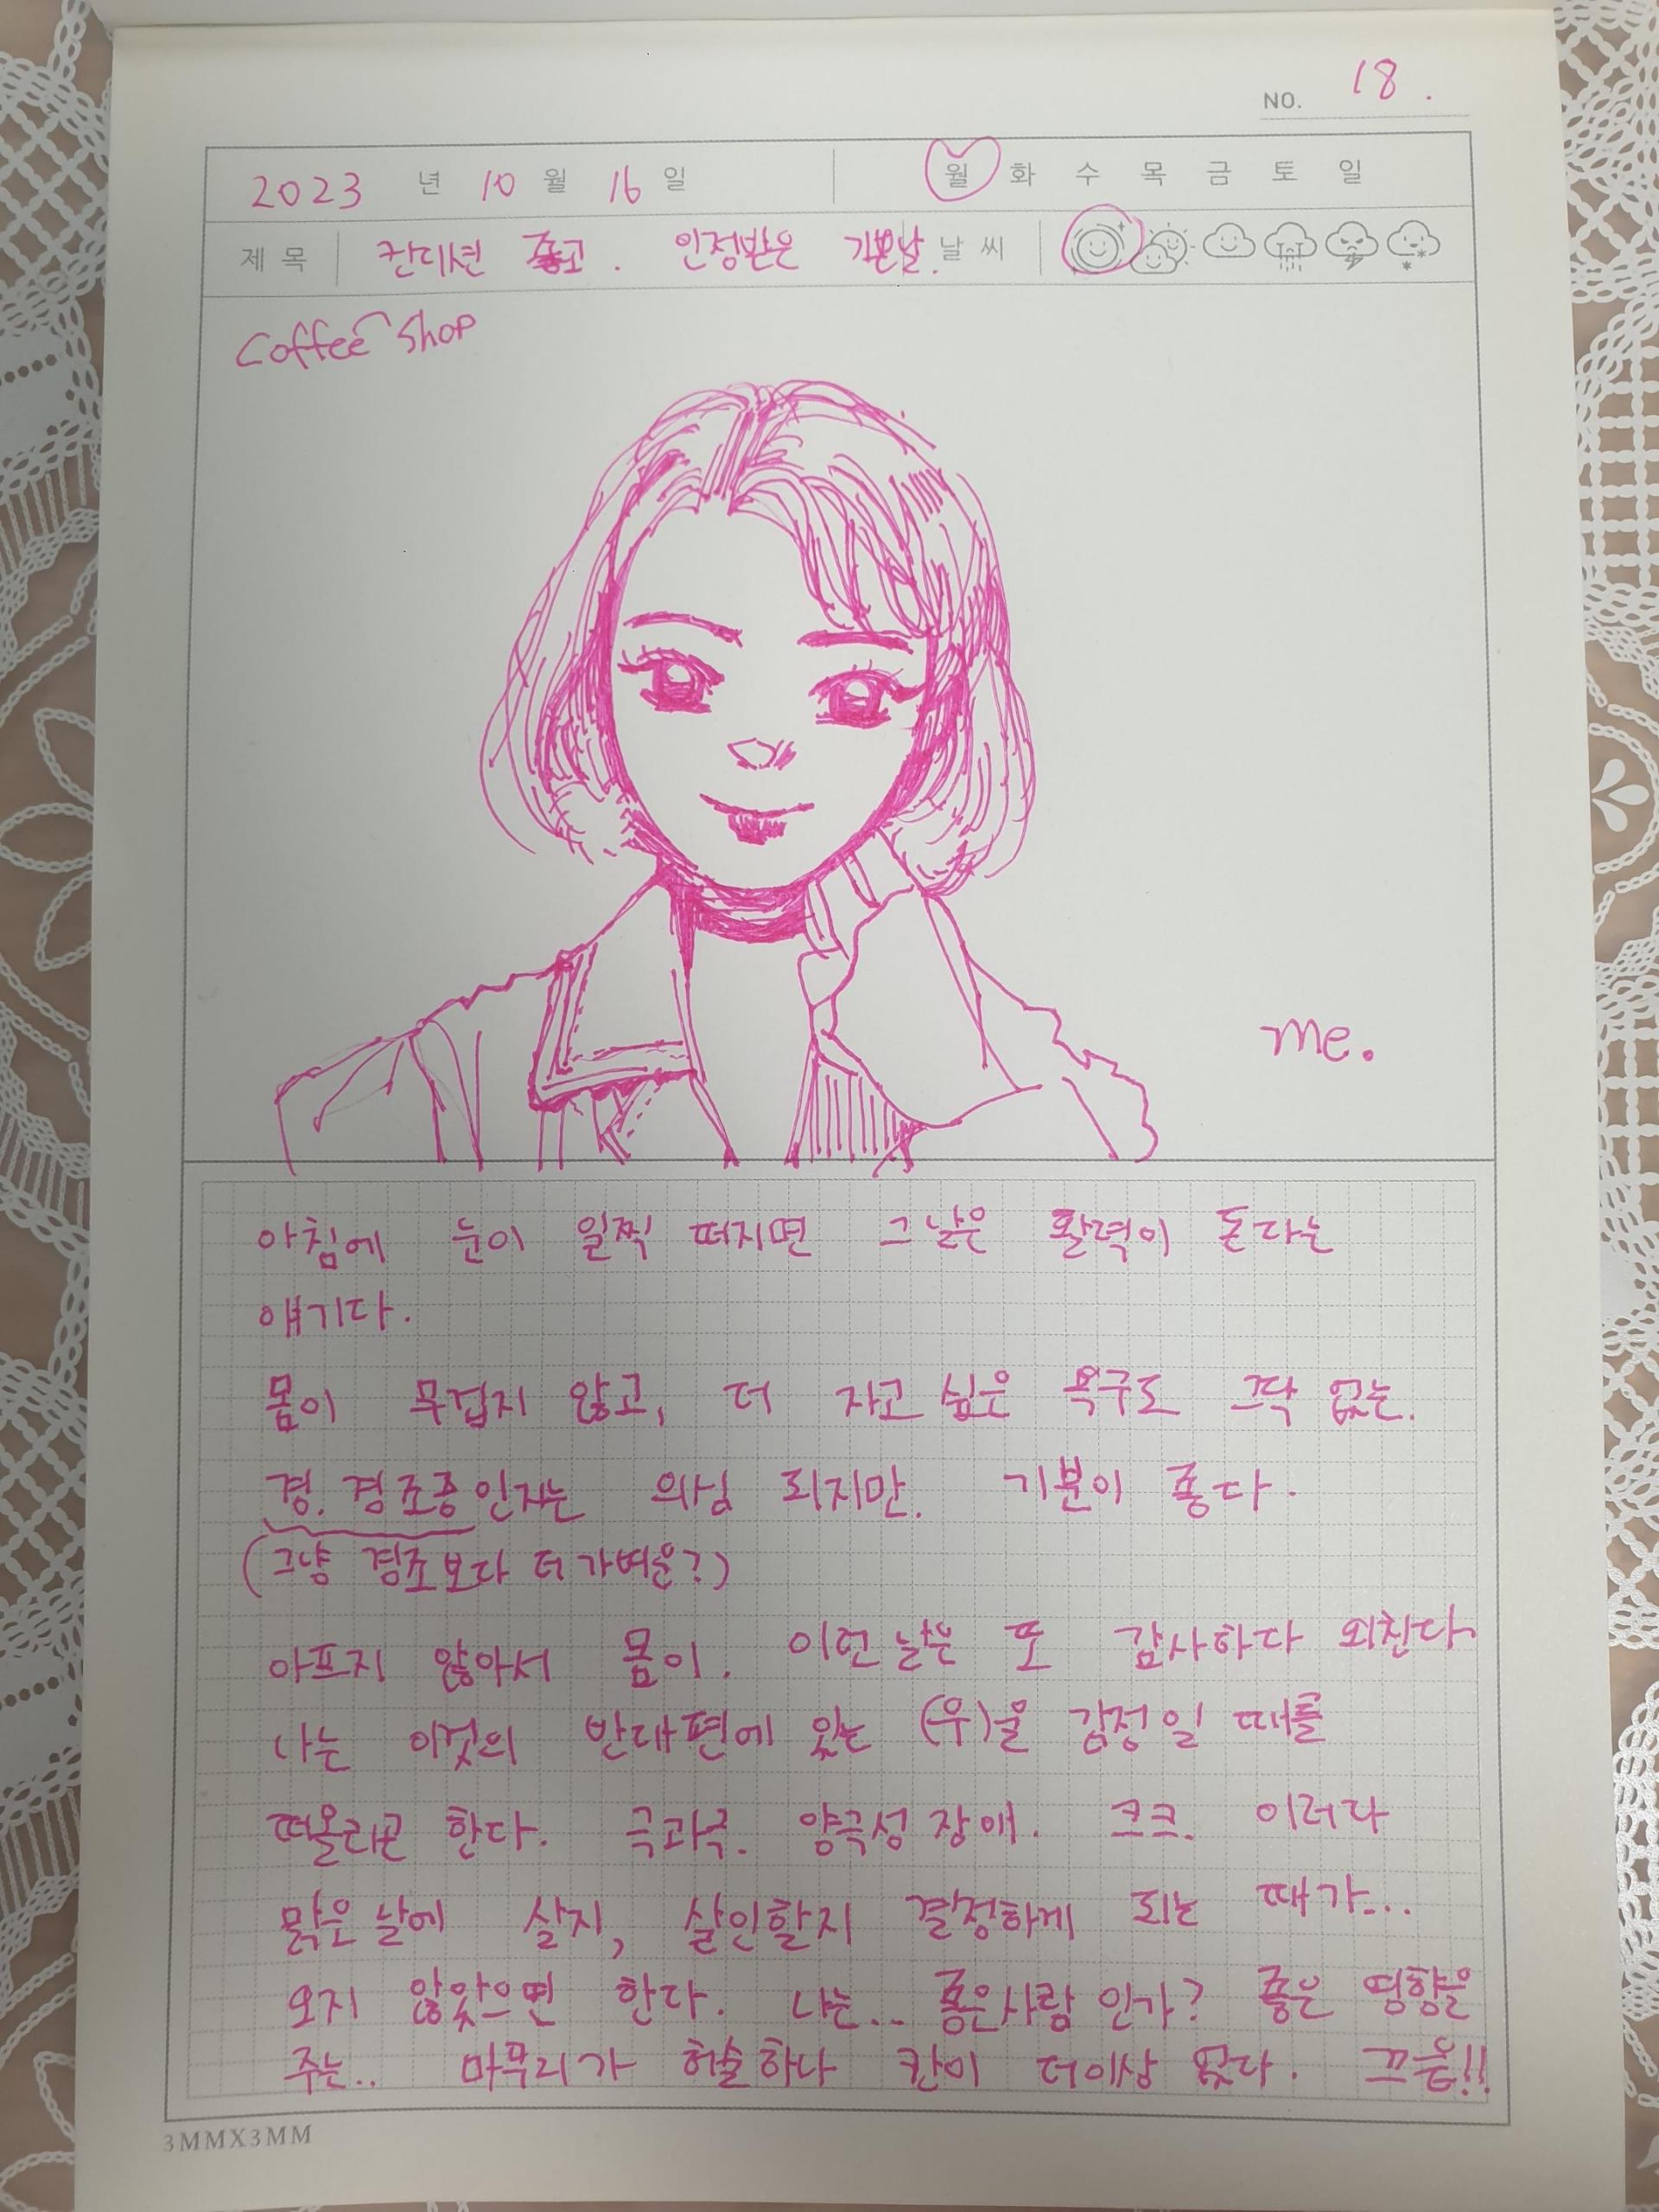 NO. 18.
2023 년 10 월 16 일 월 화 수 목 금 토 일
제목 칸디션 좋고. 인정받은 기쁜날. 날씨
Coffee Shop
me.
아침에 눈이 일찍 떠지면 그날은 활력이 돈다는
얘기다.
몸이 무겁지 않고, 더 자고싶은 욕구도 그닥 없는.
경.경조증인지는 의심 되지만. 기분이 좋다.
(그냥 경조보다 더 가벼운?)
아프지 않아서 몸이. 이런날은 또 감사하다 외친다.
나는 이것의 반대편에 있는 (우)울 감정일 때를
떠올리곤 한다. 극과극. 양극성 장애. 크크. 이러다
맑은날에 살지, 살인할지 결정하게 되는 때가...
오지 않았으면 한다. 나는... 좋은사람 인가? 좋은 영향을
주는.. 마무리가 허술하나 칸이 더이상 없다. 끄읕!!
3MMX3MM